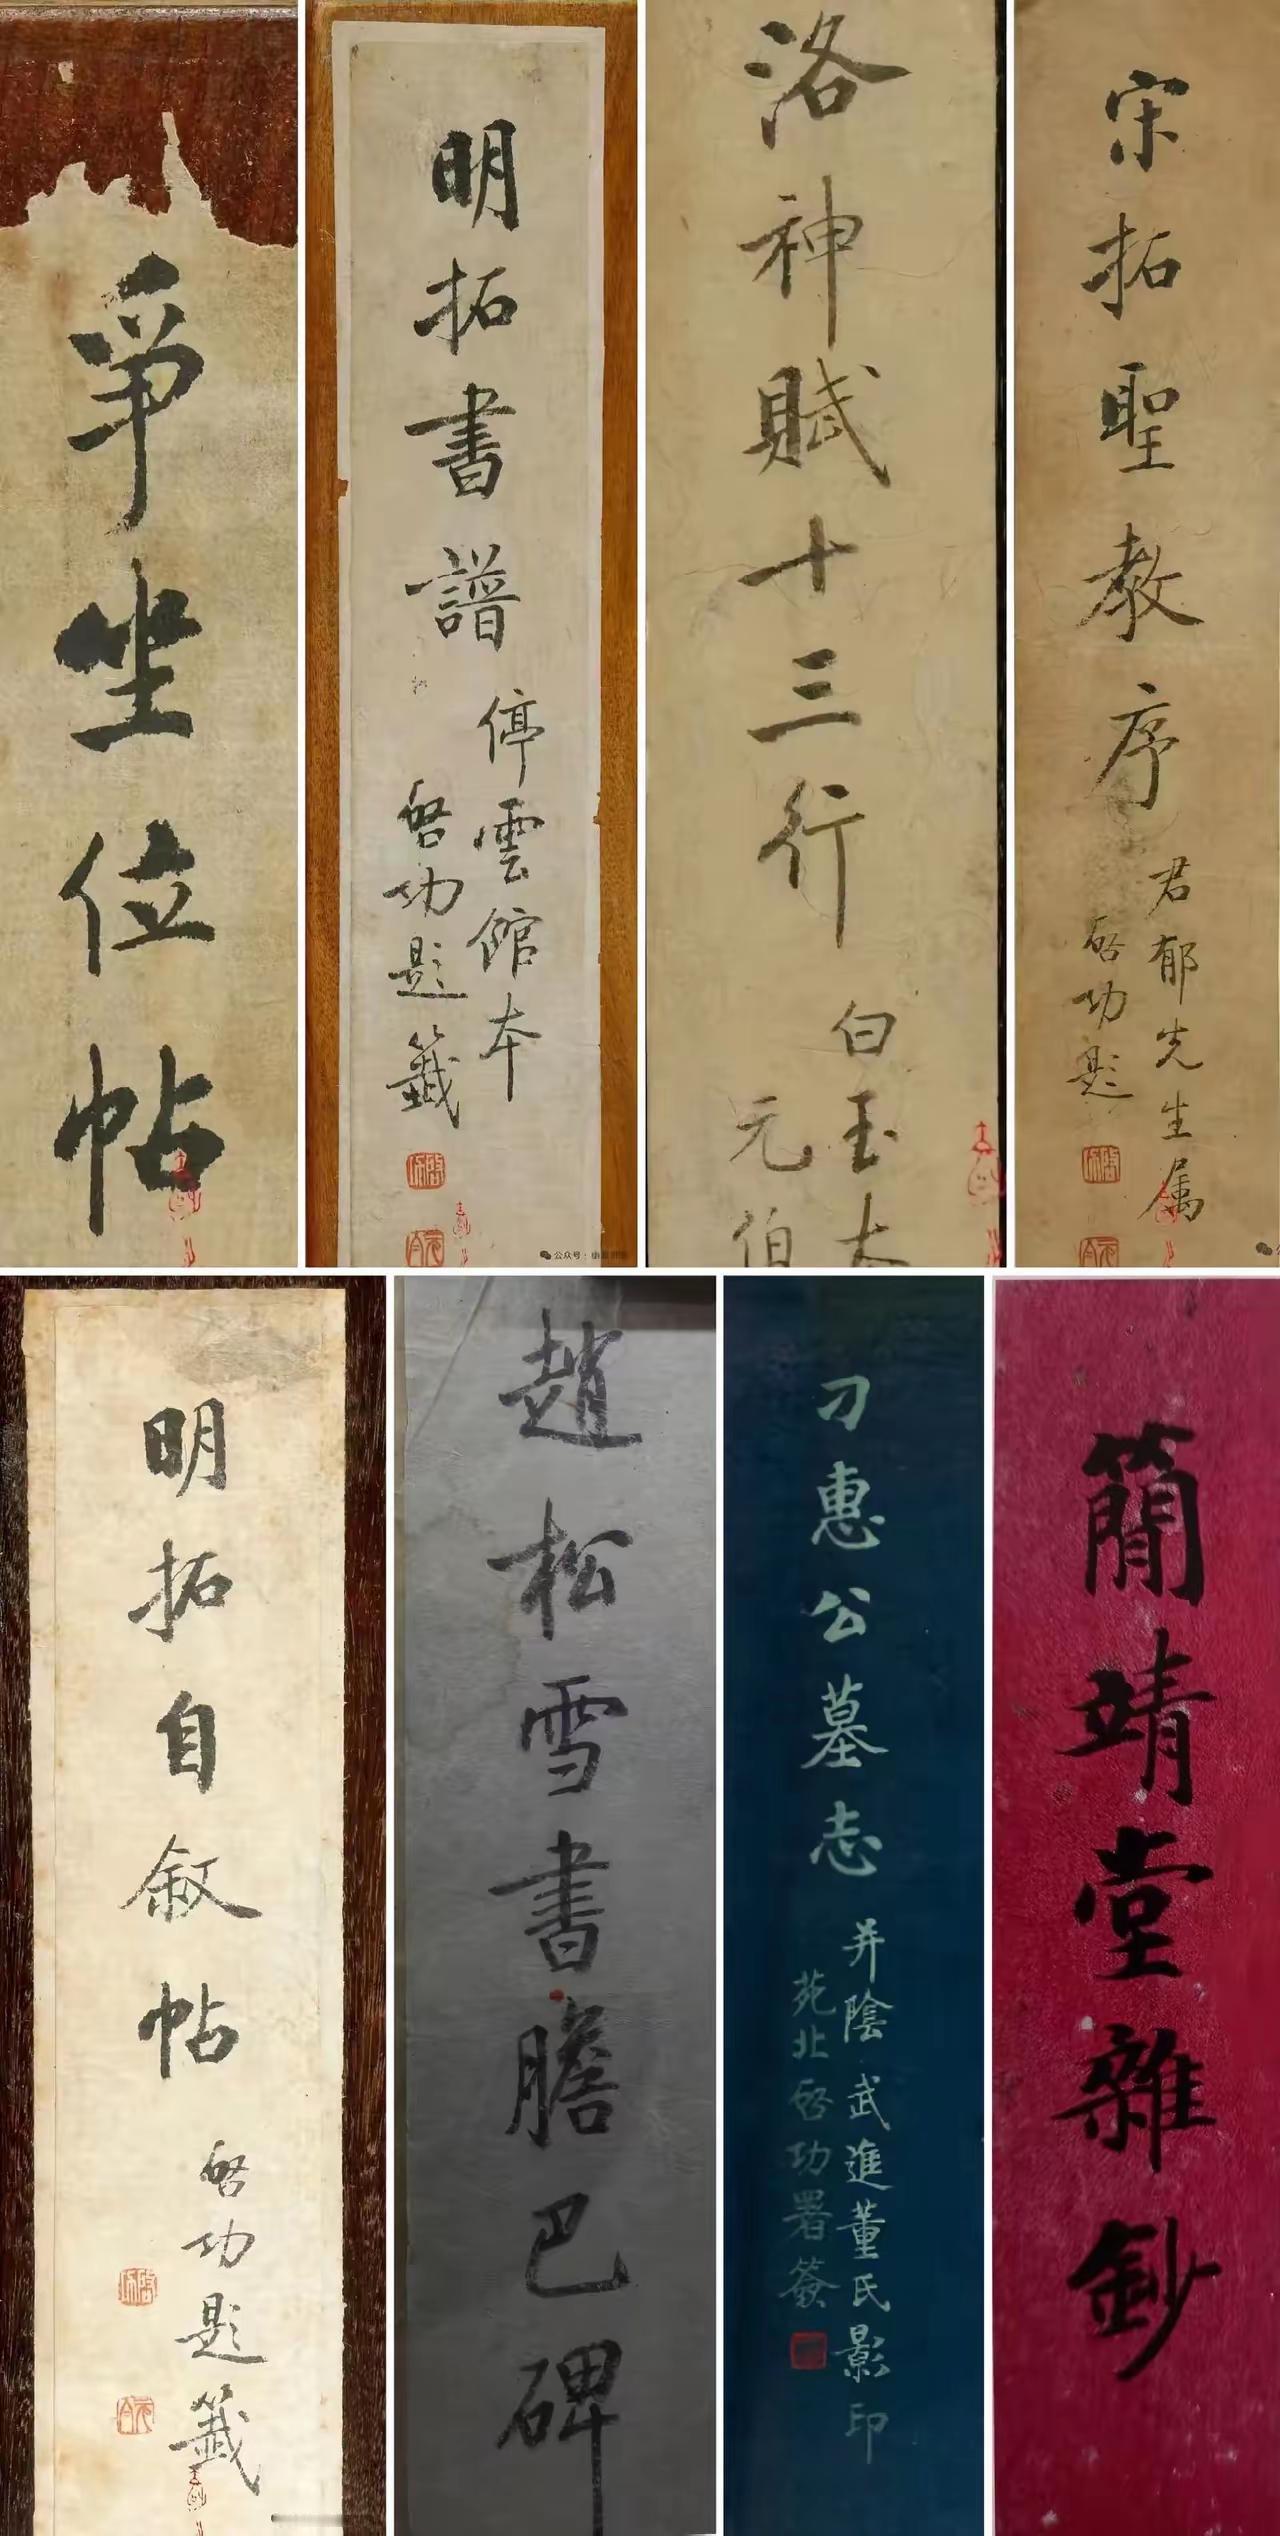 爭坐位帖
明拓書譜
停雲館本
啓功題籤
公众号·
洛神賦十三行
白玉本
元伯
宋拓聖教序
君郁先生属
啓功題
明拓自敘帖
啓功題籤
趙松雪書膽巴碑
刁惠公墓志
并陰武進董氏影印
苑北啓功署簽
簡靖堂雜鈔